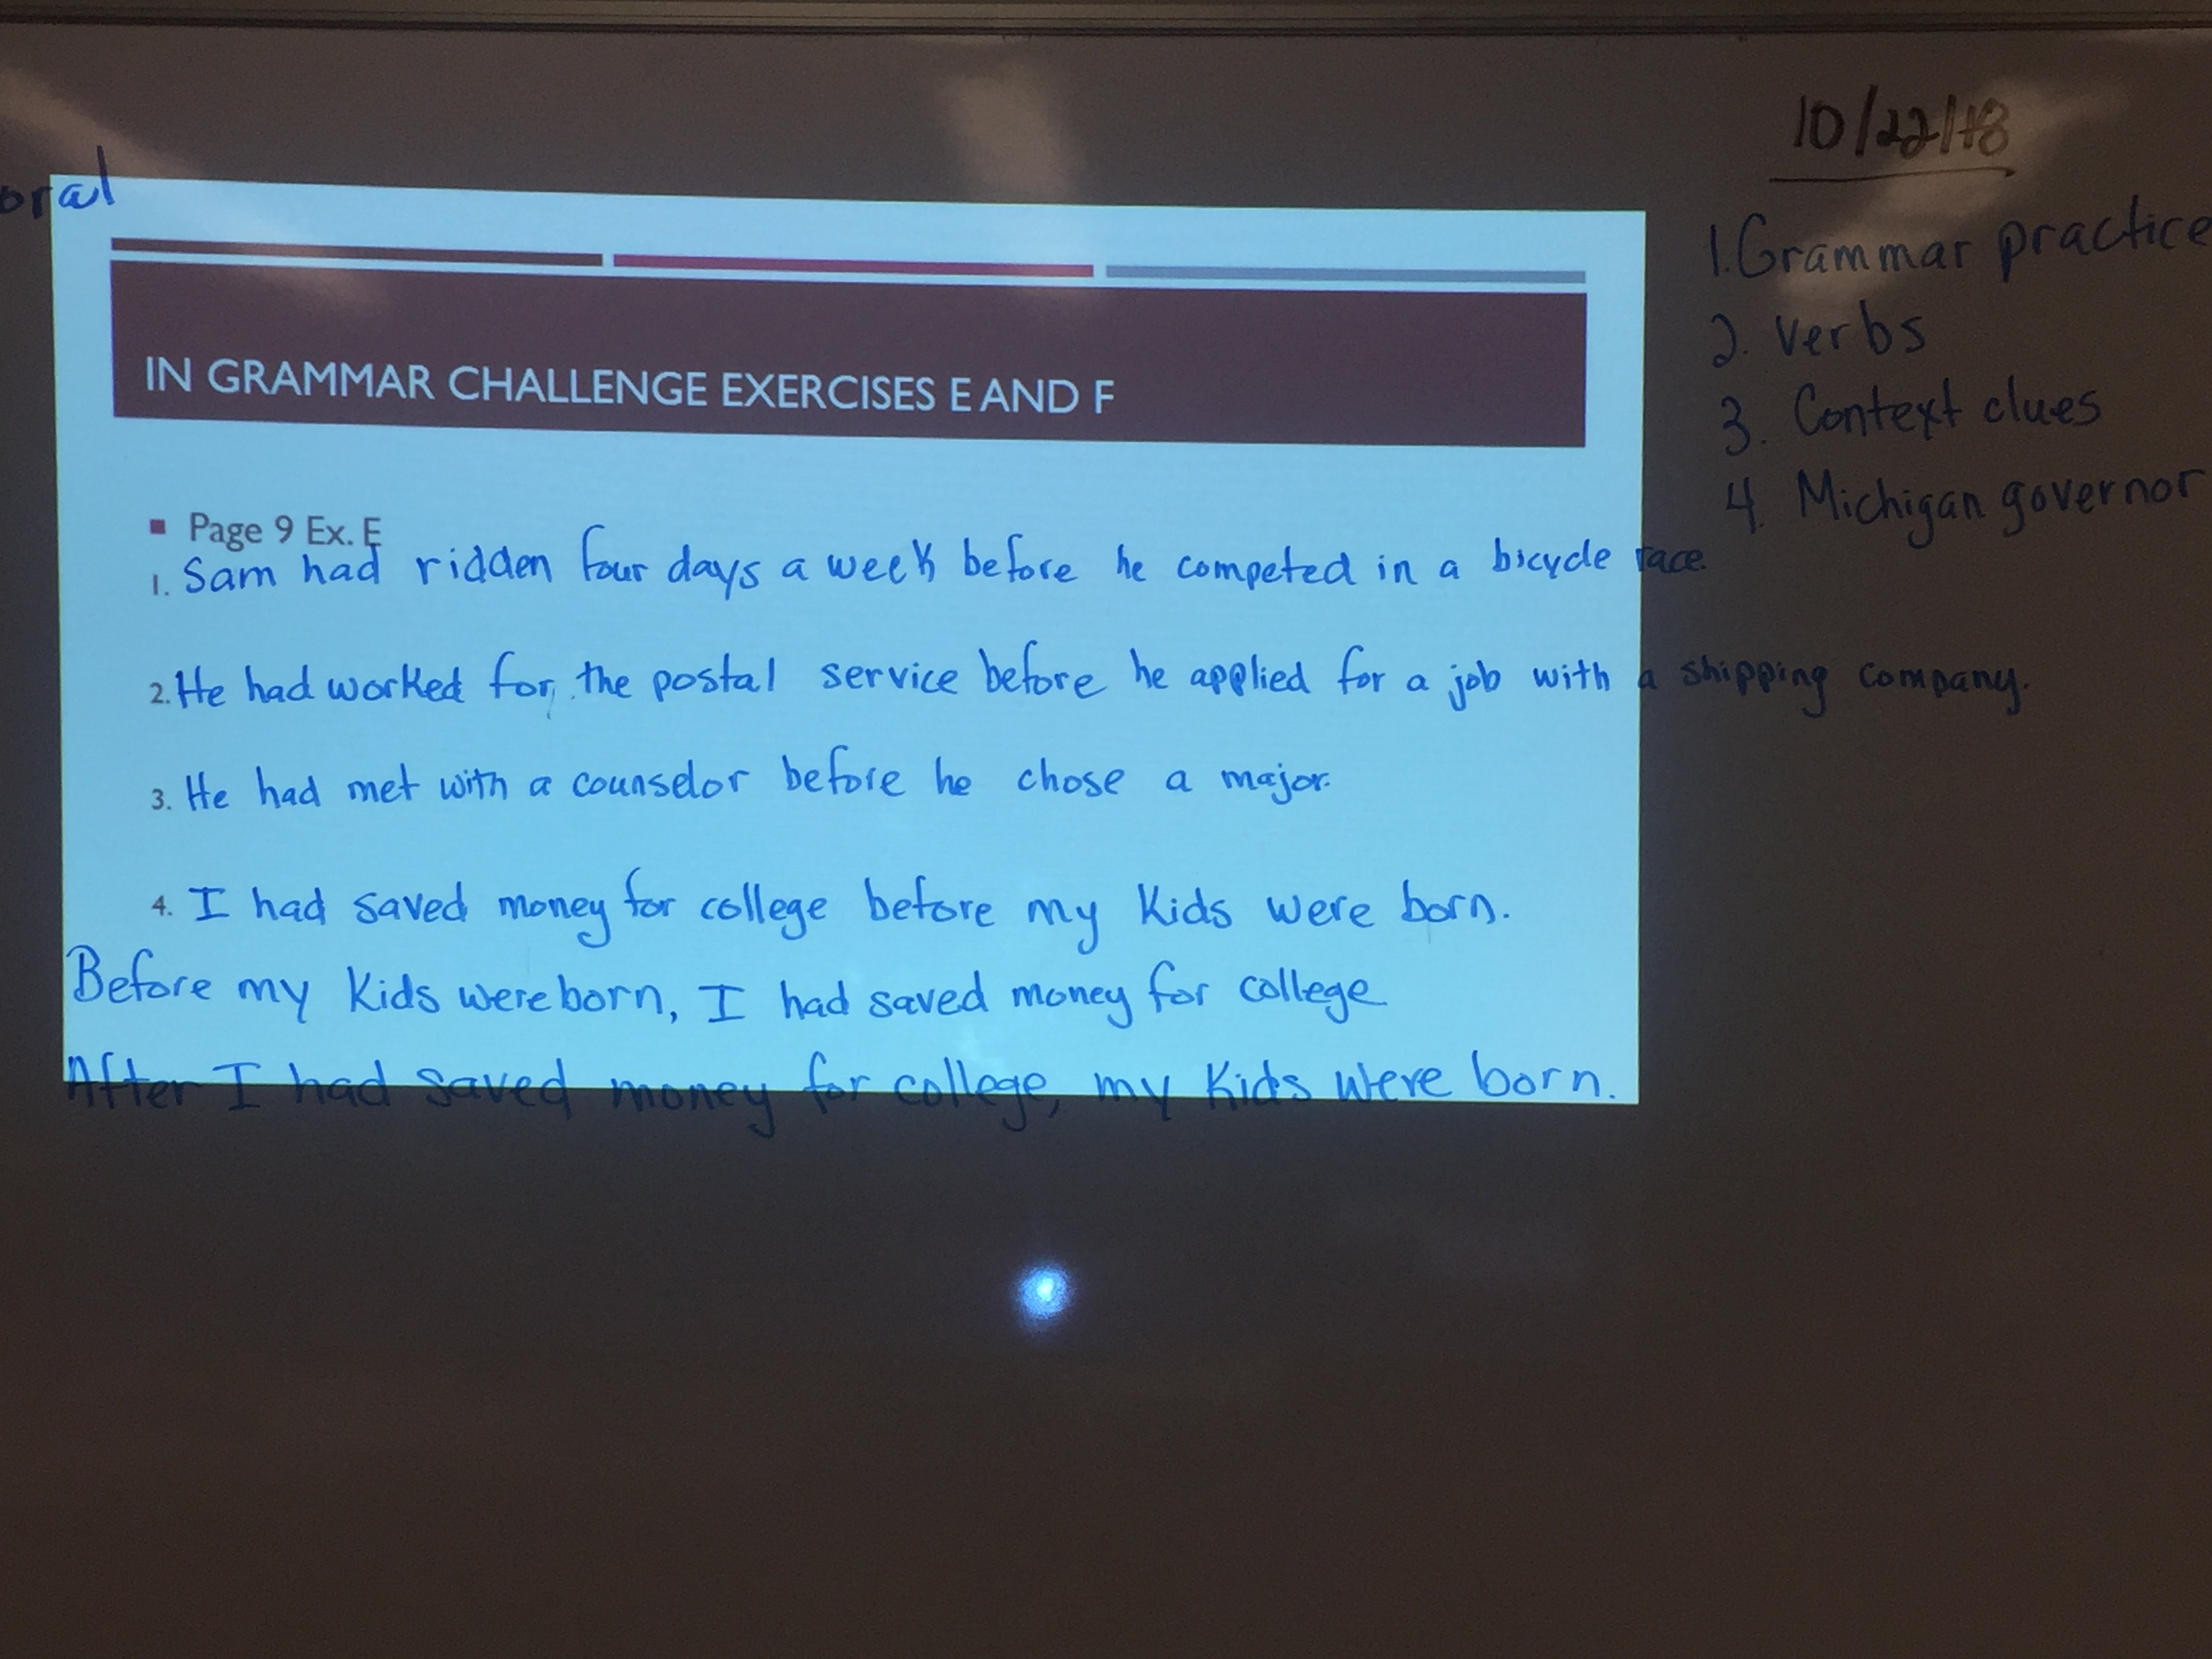 oral
10/22/18
1. Grammar practice
2. verbs
3. Context clues
4. Michigan governor
IN GRAMMAR CHALLENGE EXERCISES E AND F
▪ Page 9 Ex. E
1. Sam had ridden four days a week before he competed in a bicycle race.
2. He had worked for the postal service before he applied for a job with a shipping company.
3. He had met with a counselor before he chose a major.
4. I had saved money for college before my kids were born.
Before my kids were born, I had saved money for college.
After I had saved money for college, my kids were born.